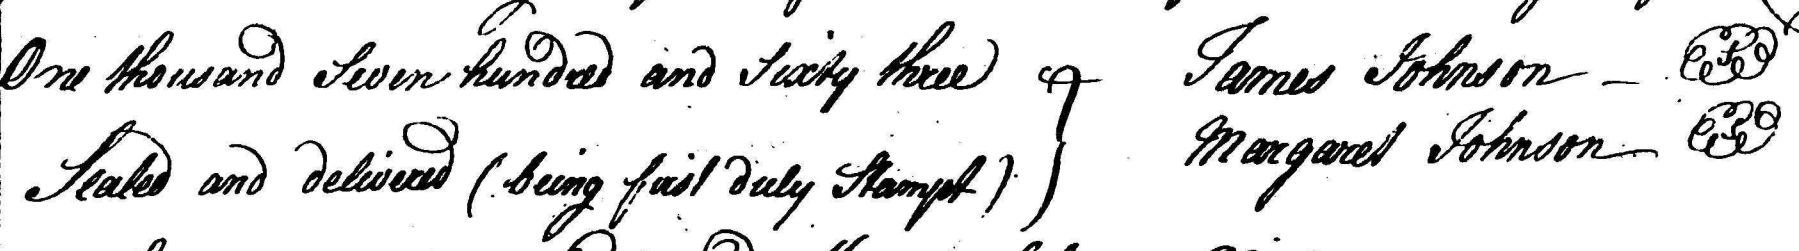 One thousand Seven hundred and Sixty three
Sealed and delivered (being first duly Stampt)
James Johnson –
Margaret Johnson –